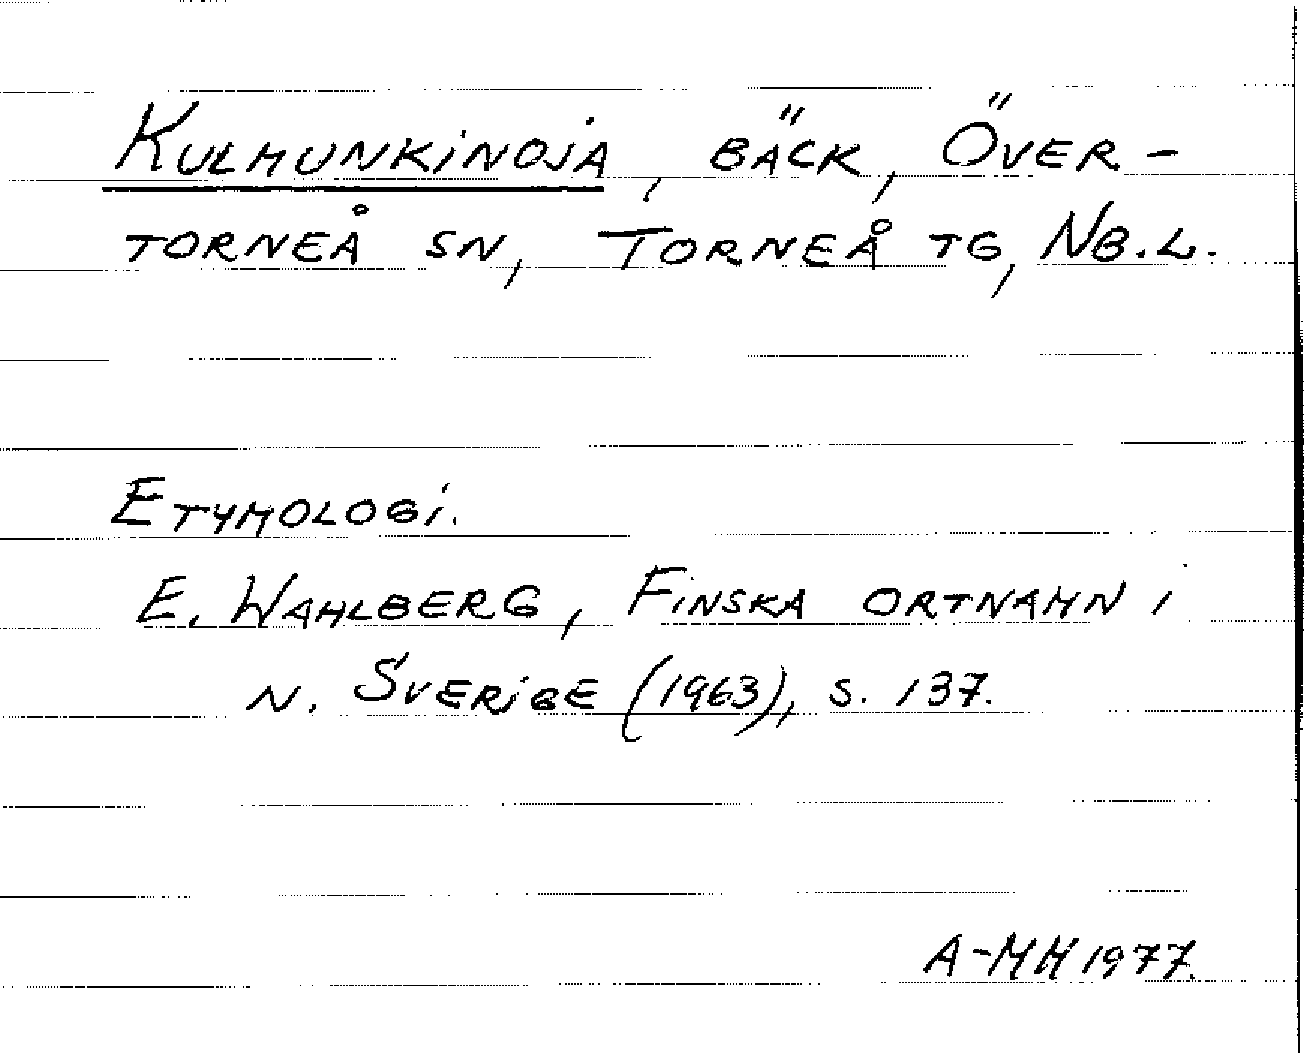 Kulmunkinoja, bäck, Över-
torneå sn, Torneå tg, Nb.l.
Etymologi.
E. Wahlberg, Finska ortnamn i
n. Sverige (1963), s. 137.
A-MM 1977.